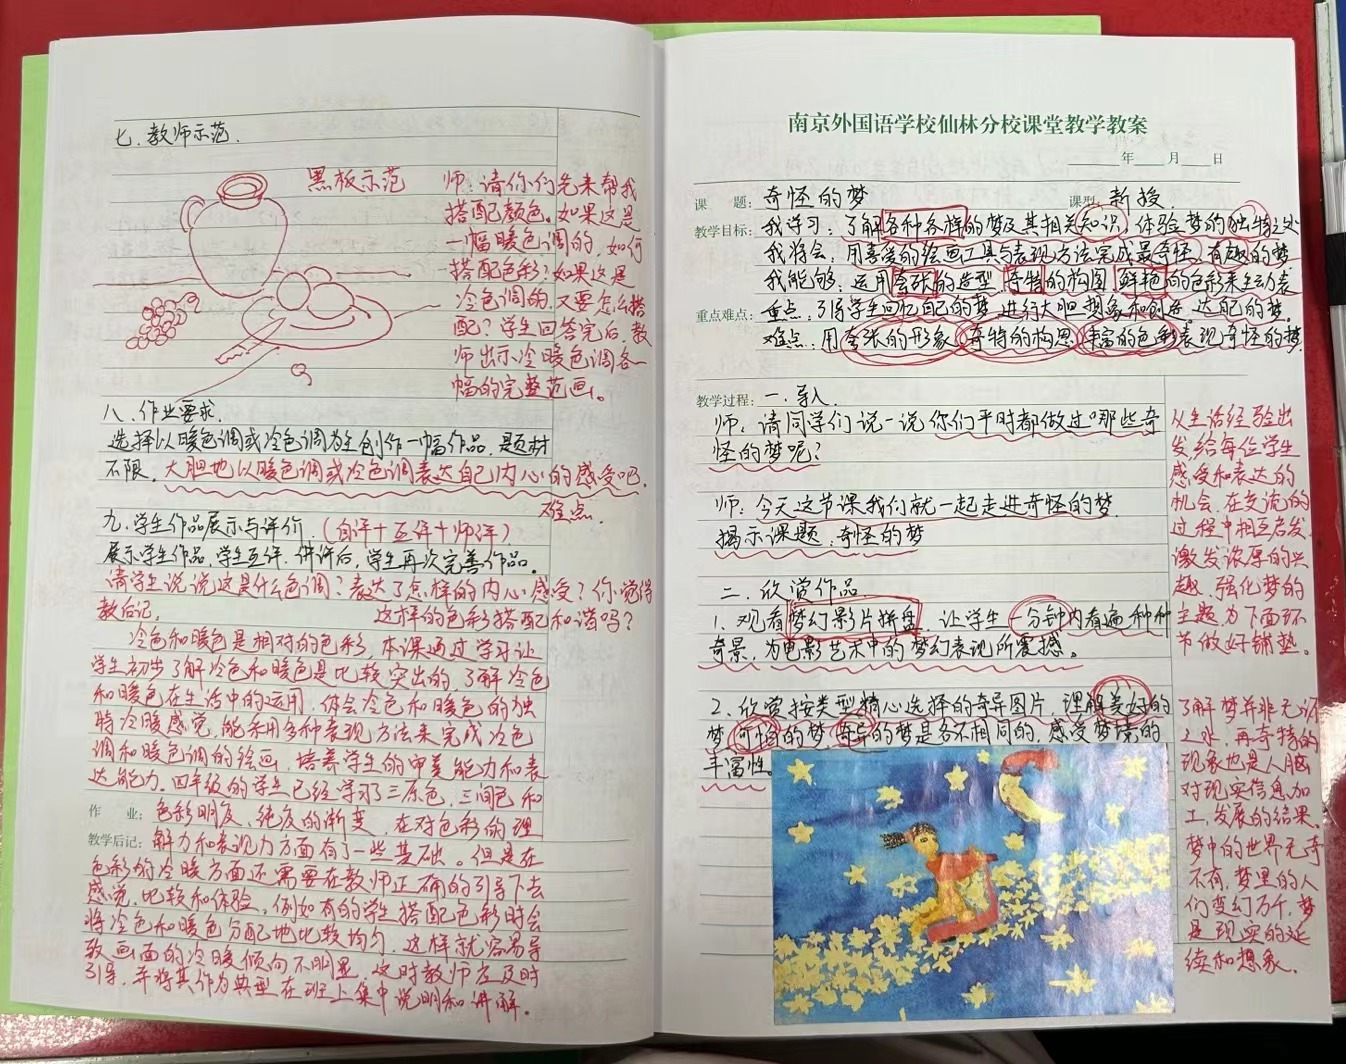 七.教师示范.
黑板示范
师:请你们先来帮我
搭配颜色。如果这是
一幅暖色调的,如何
搭配色彩?如果这是
冷色调的,又要怎么搭
配?学生回答完后,教
师出示冷暖色调各一
幅的完整范画。
八.作业要求.
选择以暖色调或冷色调为主创作一幅作品,题材
不限。大胆地以暖色调或冷色调表达自己内心的感受吧.
难点.
九.学生作品展示与评价.(自评+互评+师评)
展示学生作品,学生互评.讲评后,学生再次完善作品。
请学生说说这是什么色调?表达了怎样的内心感受?你觉得
这样的色彩搭配和谐吗?
教后记.
冷色和暖色是相对的色彩,本课通过学习让
学生初步了解冷色和暖色是比较突出的,了解冷色
和暖色在生活中的运用,体会冷色和暖色的独
特冷暖感觉,能利用多种表现方法来完成冷色
调和暖色调的绘画,培养学生的审美能力和表
达能力.四年级的学生已经学习了三原色,三间色和
作 业:色彩明度、纯度的渐变,在对色彩的理
教学后记:解力和表现力方面有了一些基础。但是在
色彩的冷暖方面还需要在教师正确的引导下去
感觉,比较和体验,例如有的学生搭配色彩时会
将冷色和暖色分配地比较均匀,这样就容易导
致画面的冷暖倾向不明显,这时教师应及时
引导,并将其作为典型在班上集中说明和讲解.
南京外国语学校仙林分校课堂教学教案
年 月 日
课 题:奇怪的梦 课型:新授.
教学目标:我学习:了解各种各样的梦及其相关知识,体验梦的独特之处
我将会:用喜爱的绘画工具与表现方法完成最奇怪、有趣的梦.
我能够:运用夸张的造型 奇特的构图 鲜艳的色彩来生动表
重点难点:重点:引导学生回忆自己的梦,进行大胆想象和创造,达的梦.
难点:用夸张的形象 奇特的构思 丰富的色彩表现奇怪的梦.
教学过程:一.导入.
师:请同学们说一说你们平时都做过哪些奇
怪的梦呢?
师:今天这节课我们就一起走进奇怪的梦.
揭示课题:奇怪的梦
从生活经验出
发给每位学生
感受和表达的
机会,在交流的
过程中相互启发,
激发浓厚的兴
趣,强化梦的
主题,为下面环
节做好铺垫。
二.欣赏作品
1.观看梦幻影片拼盘,让学生一分钟内看遍种种
奇景,为电影艺术中的梦幻表现所震撼。
2.欣赏按类型精心选择的奇异图片,理解美好的
梦 奇怪的梦 奇异的梦是各不相同的,感受梦境的
丰富性。
了解梦并非无
之处,再奇特的
现象也是人脑
对现实信息加
工,发展的结果.
梦中的世界无奇
不有,梦里的人
们变幻万千,梦
是现实的延
续和想象.